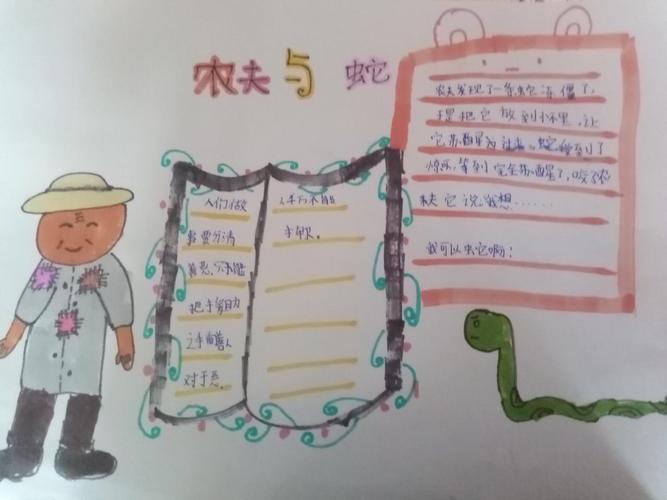 农夫与蛇
农夫发现了一条蛇冻僵了,
于是把它放到怀里,让
它苏醒 过来。蛇 到了
,等到完全苏醒了,咬了农
夫 它说我想......
我可以 它啊!
人们做
事要分清
善恶,只能
把 助
之手 善人
对于恶,
人千万不能
手软。